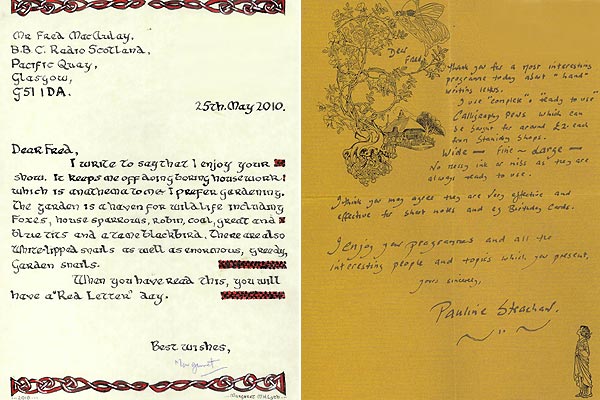 Mr Fred MacAulay,
B.B.C. Radio Scotland,
Pacific Quay,
Glasgow,
G51 1DA.
25th. May 2010.
Dear Fred,
I write to say that I enjoy your
show. It keeps me off doing boring housework
which is anathema to me & I prefer gardening.
The garden is a haven for wildlife including
foxes, house sparrows, robin, coal, great and
blue tits and a tame blackbird. There are also
white-lipped snails as well as enormous, greedy,
garden snails.
When you have read this, you will
have a "Red Letter" day.
Best wishes,
Margaret
2010
Dear
Fred,
Thank you for a most interesting
programme today about "hand"
writing letters.
I use "complete" & "ready to use"
Calligraphy Pens which can
be bought for around £2. each
from Stationery Shops.
Wide — Fine — Large —
No messy ink or nibs as they are
always ready to use.
I think you may agree they are very effective and
effective for short notes and eg Birthday Cards.
I enjoy your programmes and all the
interesting people and topics which you present,
yours sincerely,
Pauline Strachan.